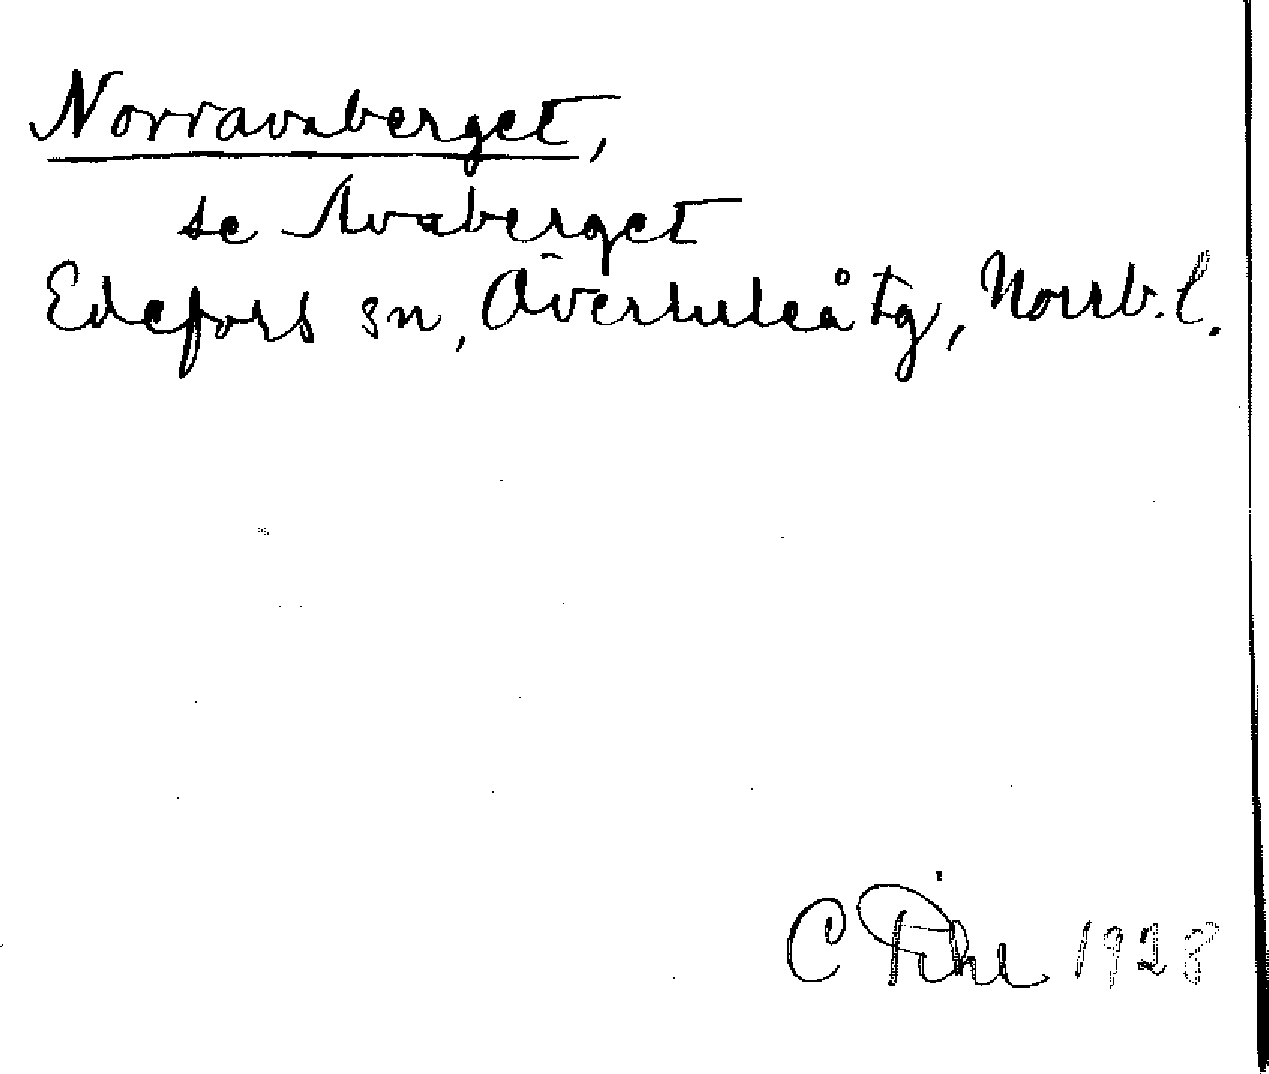 Norravaberget,
se Avaberget
Edefors sn, Överluleå tg, Norrb. l.
C Pihl 1928